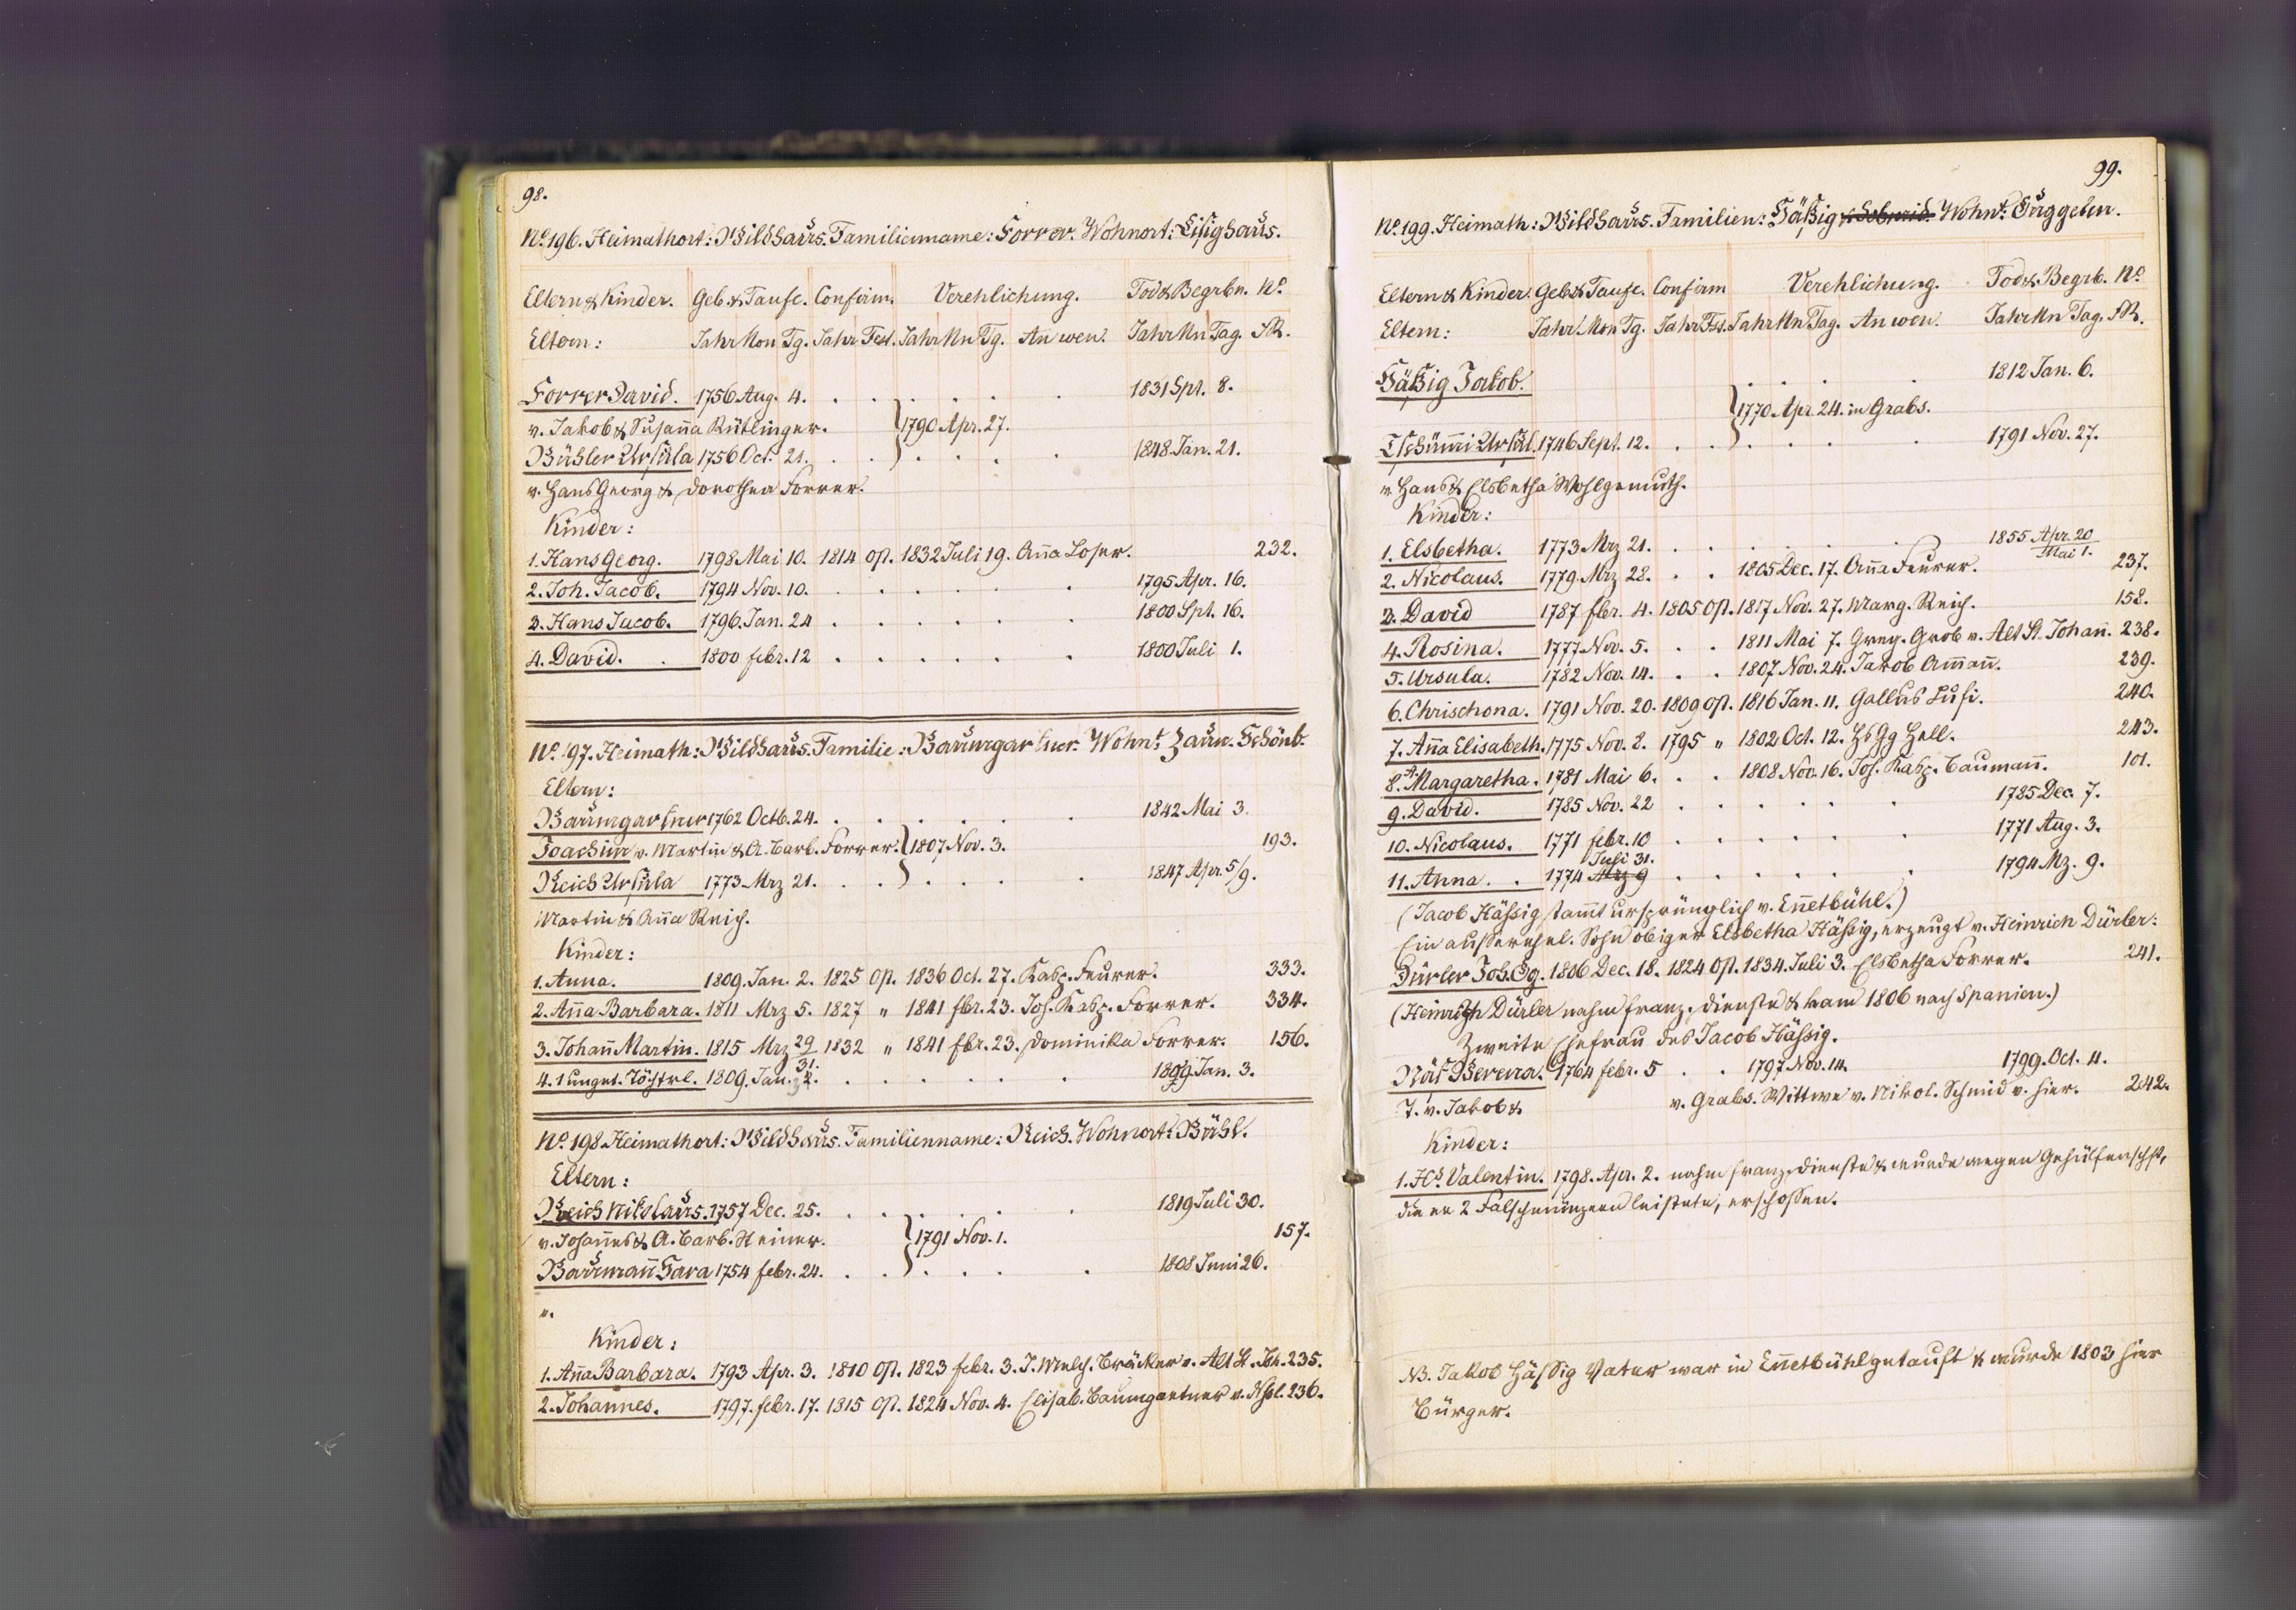 98.
No. 196. Heimathort: Wildhaus. Familienname: Forrer. Wohnort: Lisighaus.
Eltern & Kinder. Geb. & Taufe. Confirm. Verehlichung. Tod & Begrbn. No.
Eltern: Jahr Mon Tg. Jahr Fest. Jahr Mn Tg. An wen. Jahr Mn Tag. FR.
Forrer David. 1756 Aug. 4. . . . . . . 1831 Spt. 8.
v. Jakob & Susaña Kütlinger. } 1790 Apr. 27.
Bühler Ursula 1756 Oct. 21. . . . . . . 1848 Jan. 21.
v. Hans Georg & Dorothea Forrer.
Kinder:
1. Hans Georg. 1798 Mai 10. 1814 Ost. 1832 Juli 19. Aña Loser. 232.
2. Joh. Jacob. 1794 Nov. 10. . . . . . . 1795 Apr. 16.
3. Hans Jacob. 1796. Jan. 24 . . . . . . 1800 Spt. 16.
4. David. . 1800 febr. 12 . . . . . . 1800 Juli 1.
No. 197. Heimath: Wildhaus. Familie: Baumgartner. Wohnt: Zaun. Schönb.
Eltern:
Baumgartner 1762 Octb. 24. . . . . . . 1842 Mai 3.
Joachim v. Martin & A. Barb. Forrer. } 1807 Nov. 3. 193.
Reich Ursula 1773 Mrz 21. . . . . . . 1847 Apr. 5/9.
Martin & Aña Reich.
Kinder:
1. Anna. 1809. Jan. 2. 1825 Ost. 1836 Oct. 27. Kasp. Feurer. 333.
2. Aña Barbara. 1811 Mrz 5. 1827 " 1841 fbr. 23. Joh. Kasp. Forrer. 334.
3. Johañ Martin. 1815 Mrz 29/31. 1832 " 1841 fbr. 23. Dominika Forrer. 156.
4. 1 unget. Töchtrl. 1809. Jan. 2. . . . . . . 1809. Jan. 3.
No. 198. Heimathort: Wildhaus. Familienname: Reich. Wohnort: Bühl.
Eltern:
Reich Niklaus. 1757 Dec. 25. . . . . . . 1819 Juli 30.
v. Johañes & A. Barb. Steiner. } 1791 Nov. 1. 157.
Baumañ Sara 1754 febr. 24. . . . . . . 1808 Juni 26.
".
Kinder:
1. Aña Barbara. 1793 Apr. 3. 1810 Ost. 1823 febr. 3. J. Melch. Bräker v. Alt St. Joh. 235.
2. Johannes. 1797. febr. 17. 1815 Ost. 1824 Nov. 4. Elisab. Baumgartner v. Nßl. 236.
99.
No. 199. Heimath: Wildhaus. Familien: Häßig & Schmid. Wohnt: Guggeten.
Eltern & Kinder. Geb. & Taufe. Confirm Verehlichung. Tod & Begrb. No
Eltern: Jahr Mon Tg. Jahr Fst. Jahr Mn Tag. An wen. Jahr Mn Tag. FR.
Häßig Jakob. . . . . 1812 Jan. 6.
} 1770 Apr. 24. in Grabs.
Tschümi Ursul. 1746 Sept. 12. . . . . . 1791 Nov. 27.
v. Hans & Elsbetha Wohlgemuth.
Kinder:
1. Elsbetha. 1773 Mrz 21. . . . . . . 1855 Apr. 20 / Mai 1.
2. Nicolaus. 1779 Mrz 28. . . 1805 Dec. 17. Aña Feurer. 237.
3. David 1787 fbr. 4. 1805 Ost. 1817 Nov. 27. Marg. Reich. 158.
4. Rosina. 1777 Nov. 5. . . 1811 Mai 7. Greg. Grob v. Alt St. Johañ. 238.
5. Ursula. 1782 Nov. 14. . . 1807 Nov. 24. Jakob Amañ. 239.
6. Chrischona. 1791 Nov. 20. 1809 Ost. 1816 Jan. 11. Gallus Lusi. 240.
7. Aña Elisabeth. 1775 Nov. 8. 1795 " 1802 Oct. 12. Hs Gg Hell. 243.
8. A. Margaretha. 1781 Mai 6. . . 1808 Nov. 16. Joh. Kasp. Baumañ. 101.
9. David. 1785 Nov. 22 . . . . . . 1785 Dec. 7.
10. Nicolaus. 1771 febr. 10 . . . . . . 1771 Aug. 3.
Juli 31.
11. Anna. . 1774 Mrz 9 . . . . . . 1794 Mz. 9.
(Jacob Häßig stammt ursprünglich v. Eñetbühl.)
Ein ausserehel. Sohn obiger Elsbetha Häßig, erzeugt v. Heinrich Dürler:
Dürler Joh. Gg. 1806 Dec. 18. 1824 Ost. 1834. Juli 3. Elsbetha Forrer. 241.
(Heinrich Dürler nahm franz. Dienste & kam 1806 nach Spanien.)
Zweite Ehefrau des Jacob Häßig.
Näf Verena. 1764 febr. 5 . . 1797 Nov. 14. 1799. Oct. 4.
T. v. Jakob & v. Grabs. Wittwe v. Nikol. Schmid v. hier. 242.
Kinder:
1. Hs. Valentin. 1798. Apr. 2. nahm franz. Dienste & wurde wegen Gehülfenschft,
die er 2 Falschmünzern leistete, erschossen.
NB. Jakob Häßig Vater war in Eñetbühl getauft & wurde 1803 hier
Bürger.